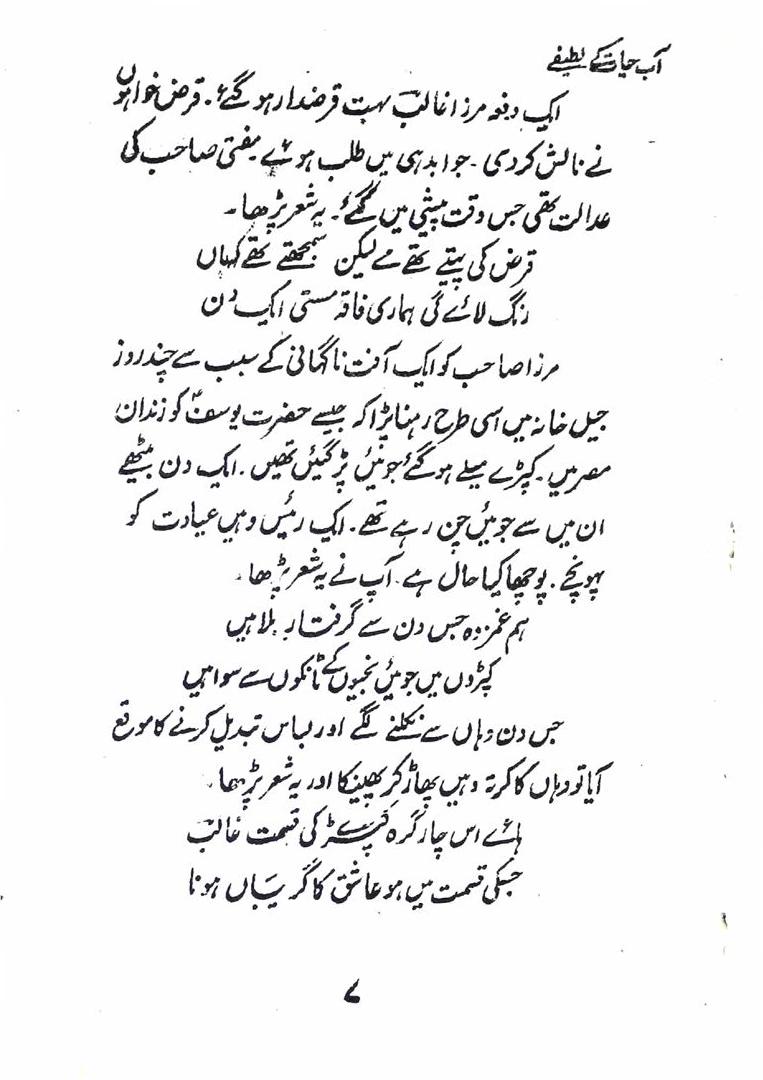 آب حیات کے لطیفے
ایک دفعہ مرزا غالبؔ بہت قرضدار ہو گئے۔ قرض خواہوں
نے نالش کر دی۔ جوابدہی میں طلب ہوئے مفتی صاحب کی
عدالت تھی جس وقت پیشی میں گئے۔ یہ شعر پڑھا۔
قرض کی پیتے تھے مے لیکن سمجھتے تھے کہاں
رنگ لائے گی ہماری فاقہ مستی ایک دن
مرزا صاحب کو ایک آفت ناگہانی کے سبب سے چند روز
جیل خانہ میں اسی طرح رہنا پڑا کہ جیسے حضرت یوسفؑ کو زندان
مصر میں۔ کپڑے میلے ہو گئے جوئیں پڑ گئیں تھیں۔ ایک دن بیٹھے
ان میں سے جوئیں چن رہے تھے۔ ایک رئیس وہیں عیادت کو
پہونچے۔ پوچھا کیا حال ہے۔ آپ نے یہ شعر پڑھا۔
ہم غمزدہ جس دن سے گرفتار بلا ہیں
کپڑوں میں جوئیں بخیوں کے ٹانکوں سے سوا ہیں
جس دن وہاں سے نکلنے لگے اور لباس تبدیل کرنے کا موقع
آیا تو وہاں کا کرتہ وہیں پھاڑ کر پھینکا اور یہ شعر پڑھا۔
ہائے اس چار گرہ کپڑے کی قسمت غالبؔ
جسکی قسمت میں ہو عاشق کا گریباں ہونا
۷